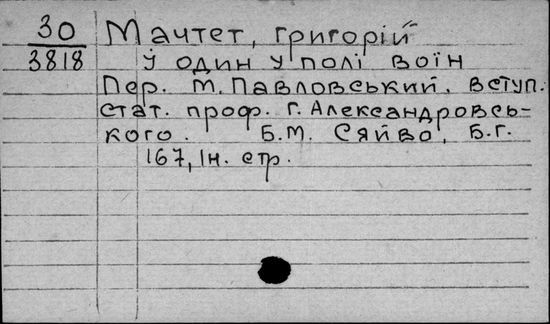 30 Мачтет, Григорій
3818 Й один у полі воїн
Пер. М. Павловський. Вступ.
стат. проф. Г. Александровсь-
кого. Б.М. Сяйво, Б.г.
167, Ін. стр.